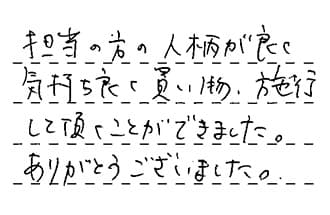 担当の方の人柄が良く
気持ち良く買い物、施行
して頂くことができました。
ありがとうございました。